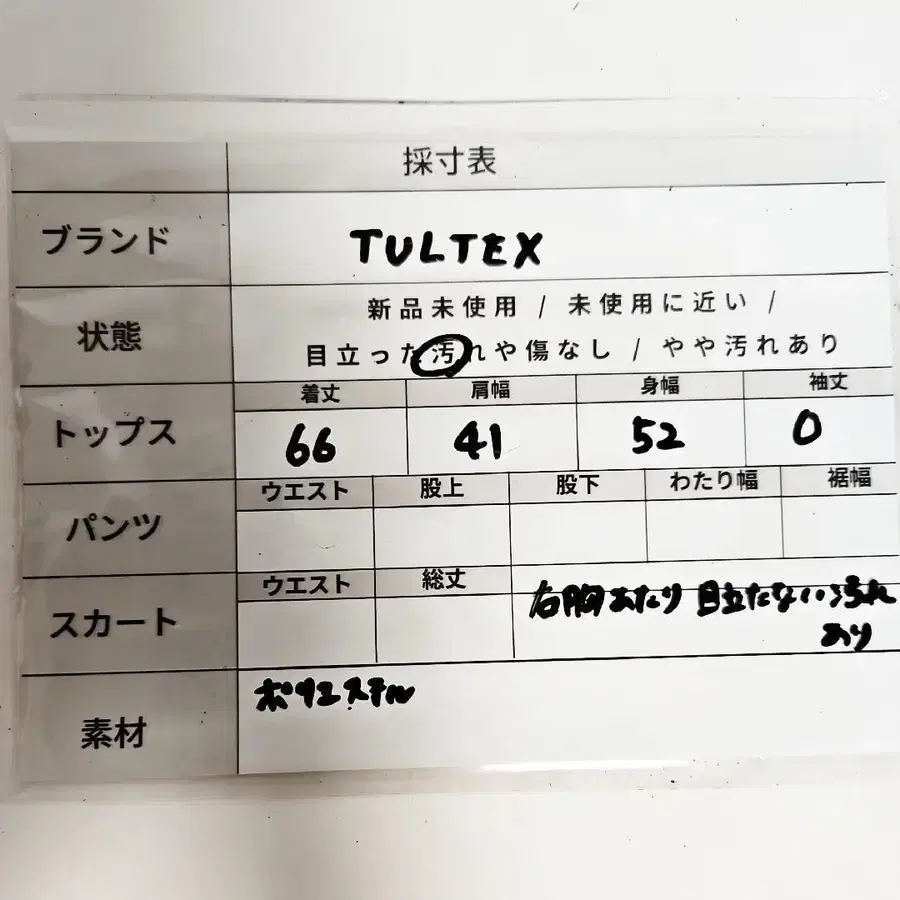 採寸表
ブランド TULTEX
状態 新品未使用 / 未使用に近い /
目立った汚れや傷なし / やや汚れあり
着丈 肩幅 身幅 袖丈
トップス 66 41 52 0
ウエスト 股上 股下 わたり幅 裾幅
パンツ
ウエスト 総丈
スカート 右胸あたり 目立たない汚れ
あり
素材 ポリエステル